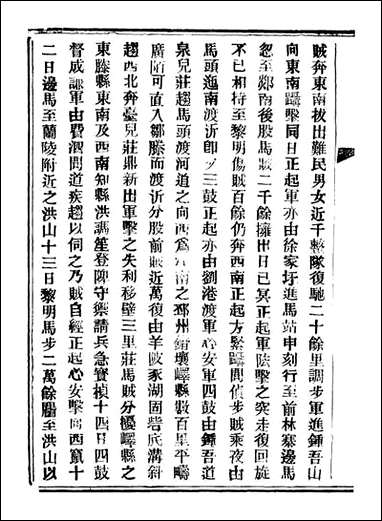 賊奔東南拔出難民男女近千整隊復馳二十餘里調步軍進鍾吾山
向東南躡擊同日正起軍亦由徐家圩進馬站申刻行至前林寨邊馬
忽至鄰南後股馬賊二千餘擁出日已冥正起軍陡擊之突走復回旋
不已相持至黎明傷賊百餘仍奔西南正起方緊躡間偵步賊乘夜由
馬頭迤南渡沂卽於三鼓正起亦由劉港渡軍心安軍四鼓由鍾吾道
泉兒莊趨馬頭渡河道之向西爲江南之邳州銜壤嶧縣數百里平疇
廣陌可直入鄒滕而渡沂分股前賊近萬復由羊陂豖湖固砦底溝斜
趨西北奔臺兒莊鼎新出軍擊之失利移壁三里莊馬賊分擾嶧縣之
東滕縣東南及西南知縣洪調笙登陴守禦請兵急寶楨十四日四鼓
督成謙軍由費泗間道疾趨以伺之乃賊自經正起心安擊向西竄十
二日邊馬至蘭陵附近之洪山十三日黎明馬步二萬餘臨至洪山以